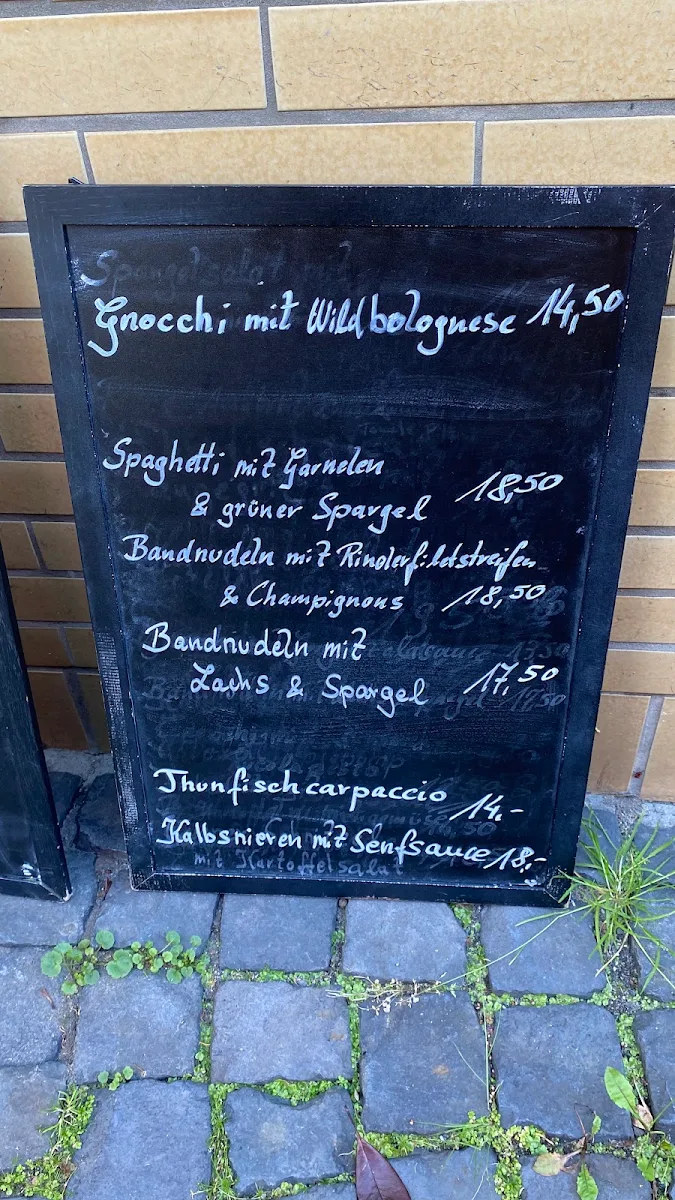 Spargelsalat mit
Gnocchi mit Wildbolognese 14,50
Spaghetti mit Garnelen
& grüner Spargel 18,50
Bandnudeln mit Rinderfiletstreifen
& Champignons 18,50
Bandnudeln mit
Lachs & Spargel 17,50
Thunfischcarpaccio 14.-
Kalbsnieren mit Senfsauce 18,-
mit Kartoffelsalat